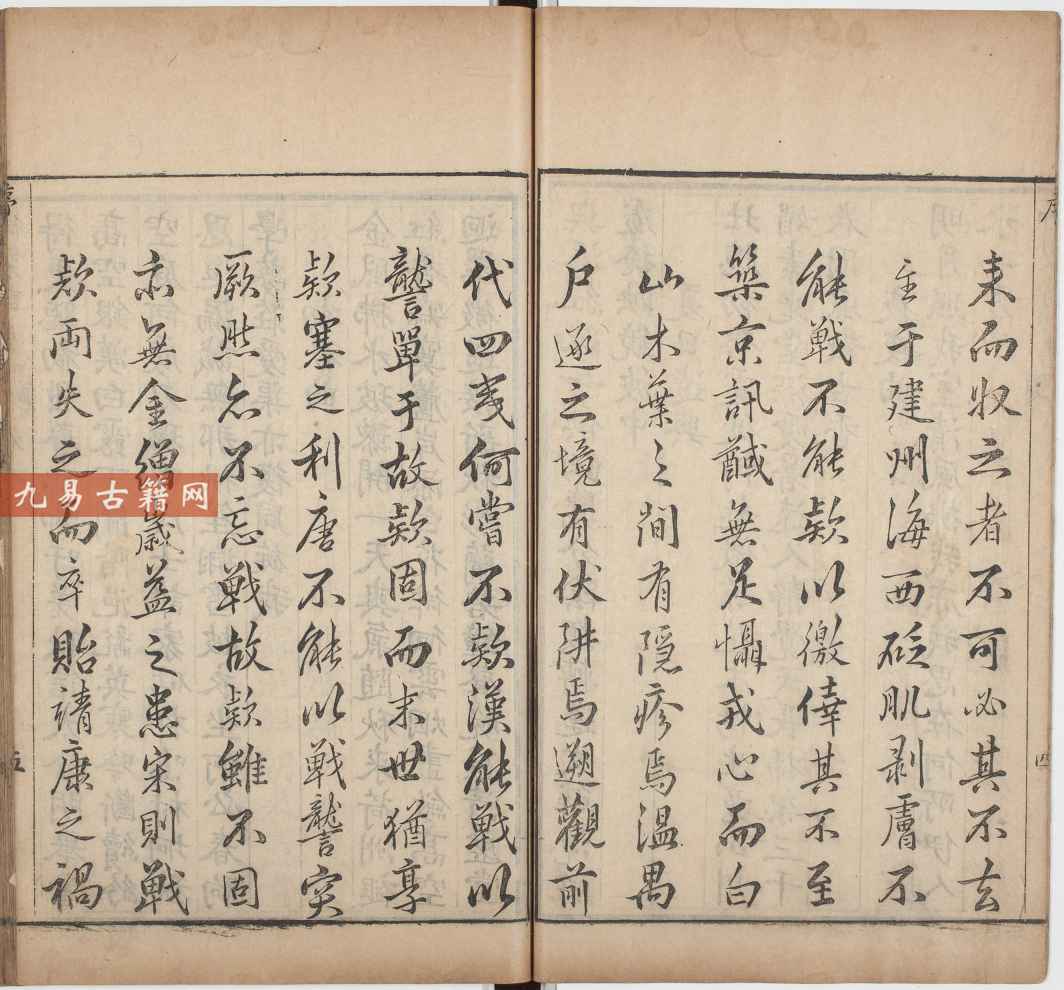 序
來而收之者不可必其不去
至于建州海西砭肌剥膚不
能戰不能款以徼倖其不至
築京訊馘無足懾戎心而白
山木葉之間有隱疹焉溫禺
户逐之境有伏阱焉遡觀前
四
代四夷何嘗不款漢能戰以
讋單于故款固而末世猶享
款塞之利唐不能以戰讋突
厥然亦不忘戰故款雖不固
亦無金繒歲益之患宋則戰
款両失之而卒貽靖康之禍
序
五
九易古籍网